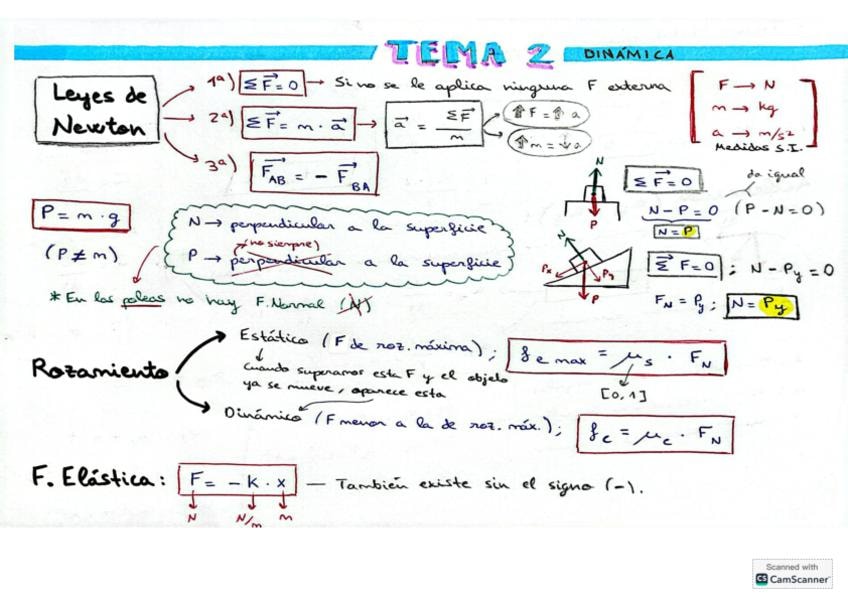 TEMA 2 DINÁMICA
Leyes de
Newton
1ª) ΣF⃗=0 → Si no se le aplica ninguna F externa
2ª) ΣF⃗ = m · a⃗ → a⃗ = ΣF⃗ / m
⇧F = ⇧a
⇧m = ↓a
3ª) F⃗AB = - F⃗BA
F → N
m → kg
a → m/s²
Medidas S.I.
P = m · g
(P ≠ m)
N → perpendicular a la superficie
(no siempre)
P → perpendicular a la superficie
* En las poleas no hay F. Normal (N)
N
P
ΣF⃗=0
da igual
N-P=0 (P-N=0)
N=P
N
Px
Py
P
ΣF⃗=0 ; N-Py=0
FN = Py ; N = Py
Rozamiento
Estático (F de roz. máxima) ; fe max = μs · FN
[0,1]
Cuando superamos esta F y el objeto
ya se mueve, aparece esta
Dinámico (F menor a la de roz. máx.) ; fc = μc · FN
F. Elástica : F = -k · x — También existe sin el signo (-).
N N/m m
Scanned with
CS CamScanner